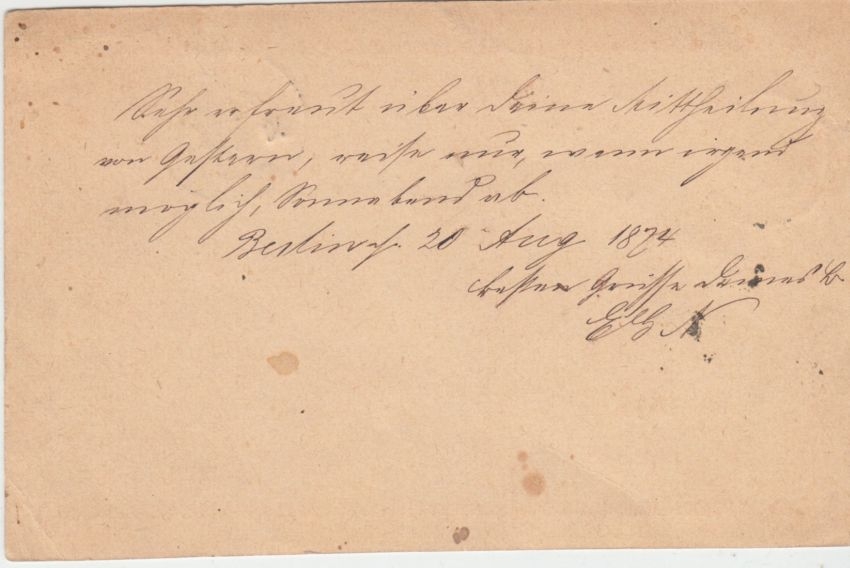 Sehr erfreut über Deine Mittheilung
von Gestern, reise nur, wenn irgend
möglich, Sonnabend ab.
Berlin d. 20 Aug 1874
besten Grüsse Deines